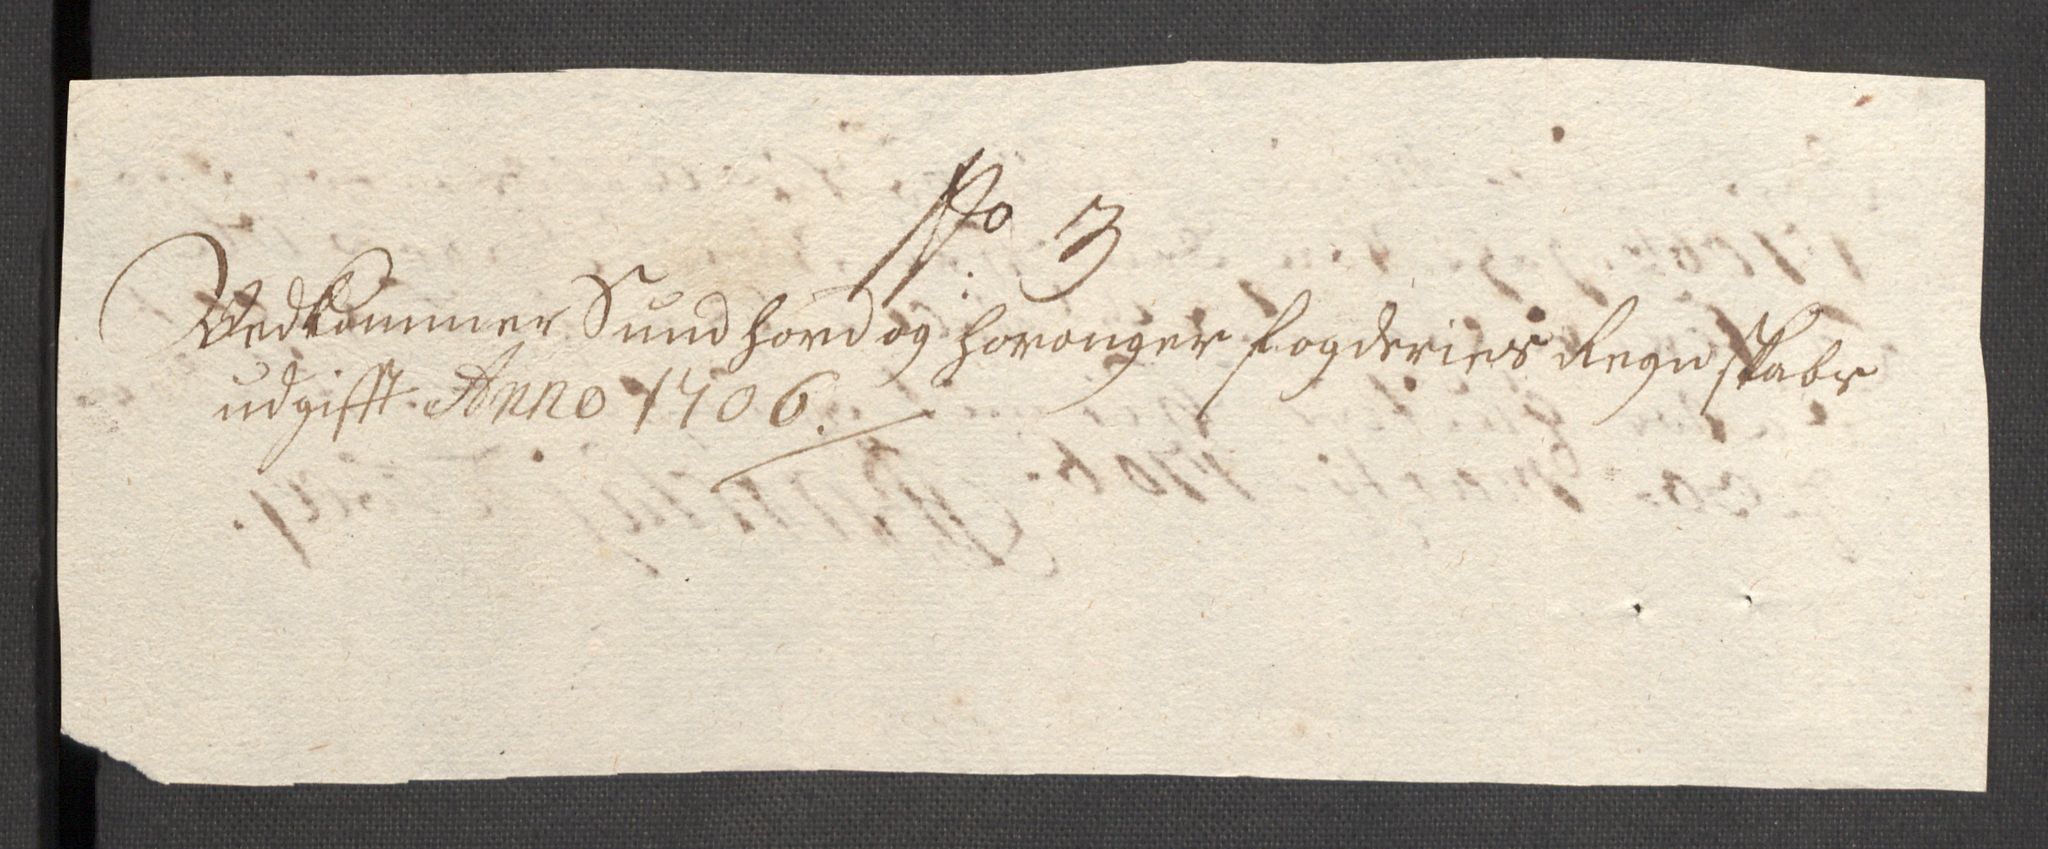 No. 3
Vedkommer Sundhord og Haranger fogderies Regnskabs
udgifft Anno 1706.